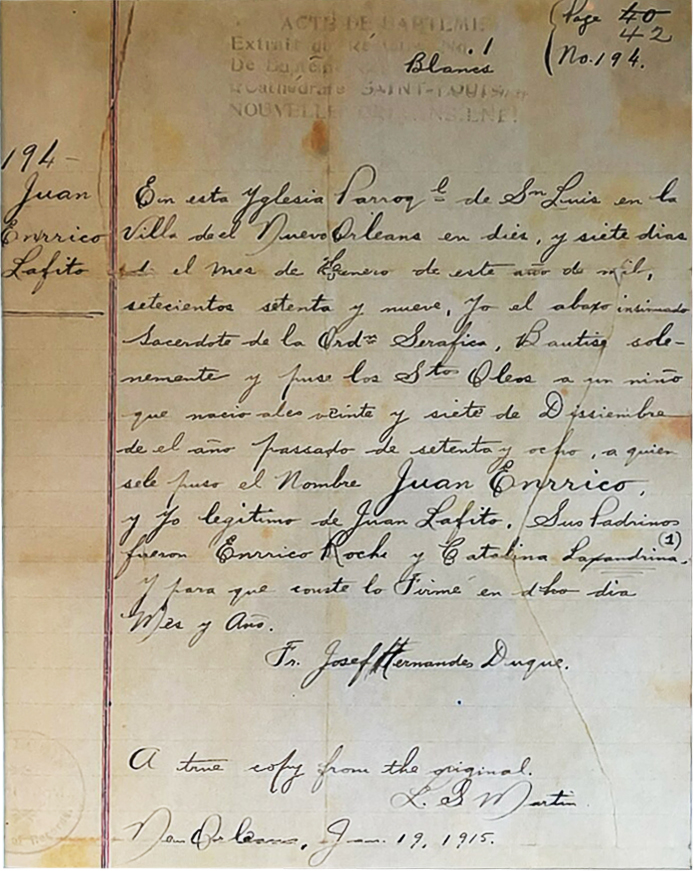 ACTE DE BAPTEME
Extrait du Registre No. 1
De Baptême Blancs
Cathédrale SAINT-LOUIS
NOUVELLE ORLEANS, LNE.
(Page 40
42
No. 194.
194-
Juan
Enrrico
Lafito
En esta Yglesia Parroql de Sn Luis en la
Villa de el Nuevo Orleans en dies, y siete dias
d. el mes de Henero de este año de mil,
setecientos setenta y nueve, Yo el abaxo insinuado
Sacerdote de la Ordn Serafica, Bautise sole-
nemente y puse los Stos Oleos a un niño
que nacio a los veinte y siete de Dissiembre
de el año passado de setenta y ocho, a quien
sele puso el Nombre Juan Enrrico,
y Jo legitimo de Juan Lafito. Sus Padrinos
fueron Enrrico Roche y Catalina Laxandrina. (1)
y para que conste lo Firmé en dho dia
Mes y Año.
Fr. Josef Hernandes Duque.
A true copy from the original.
L. G Martin
New Orleans, Jan. 19, 1915.